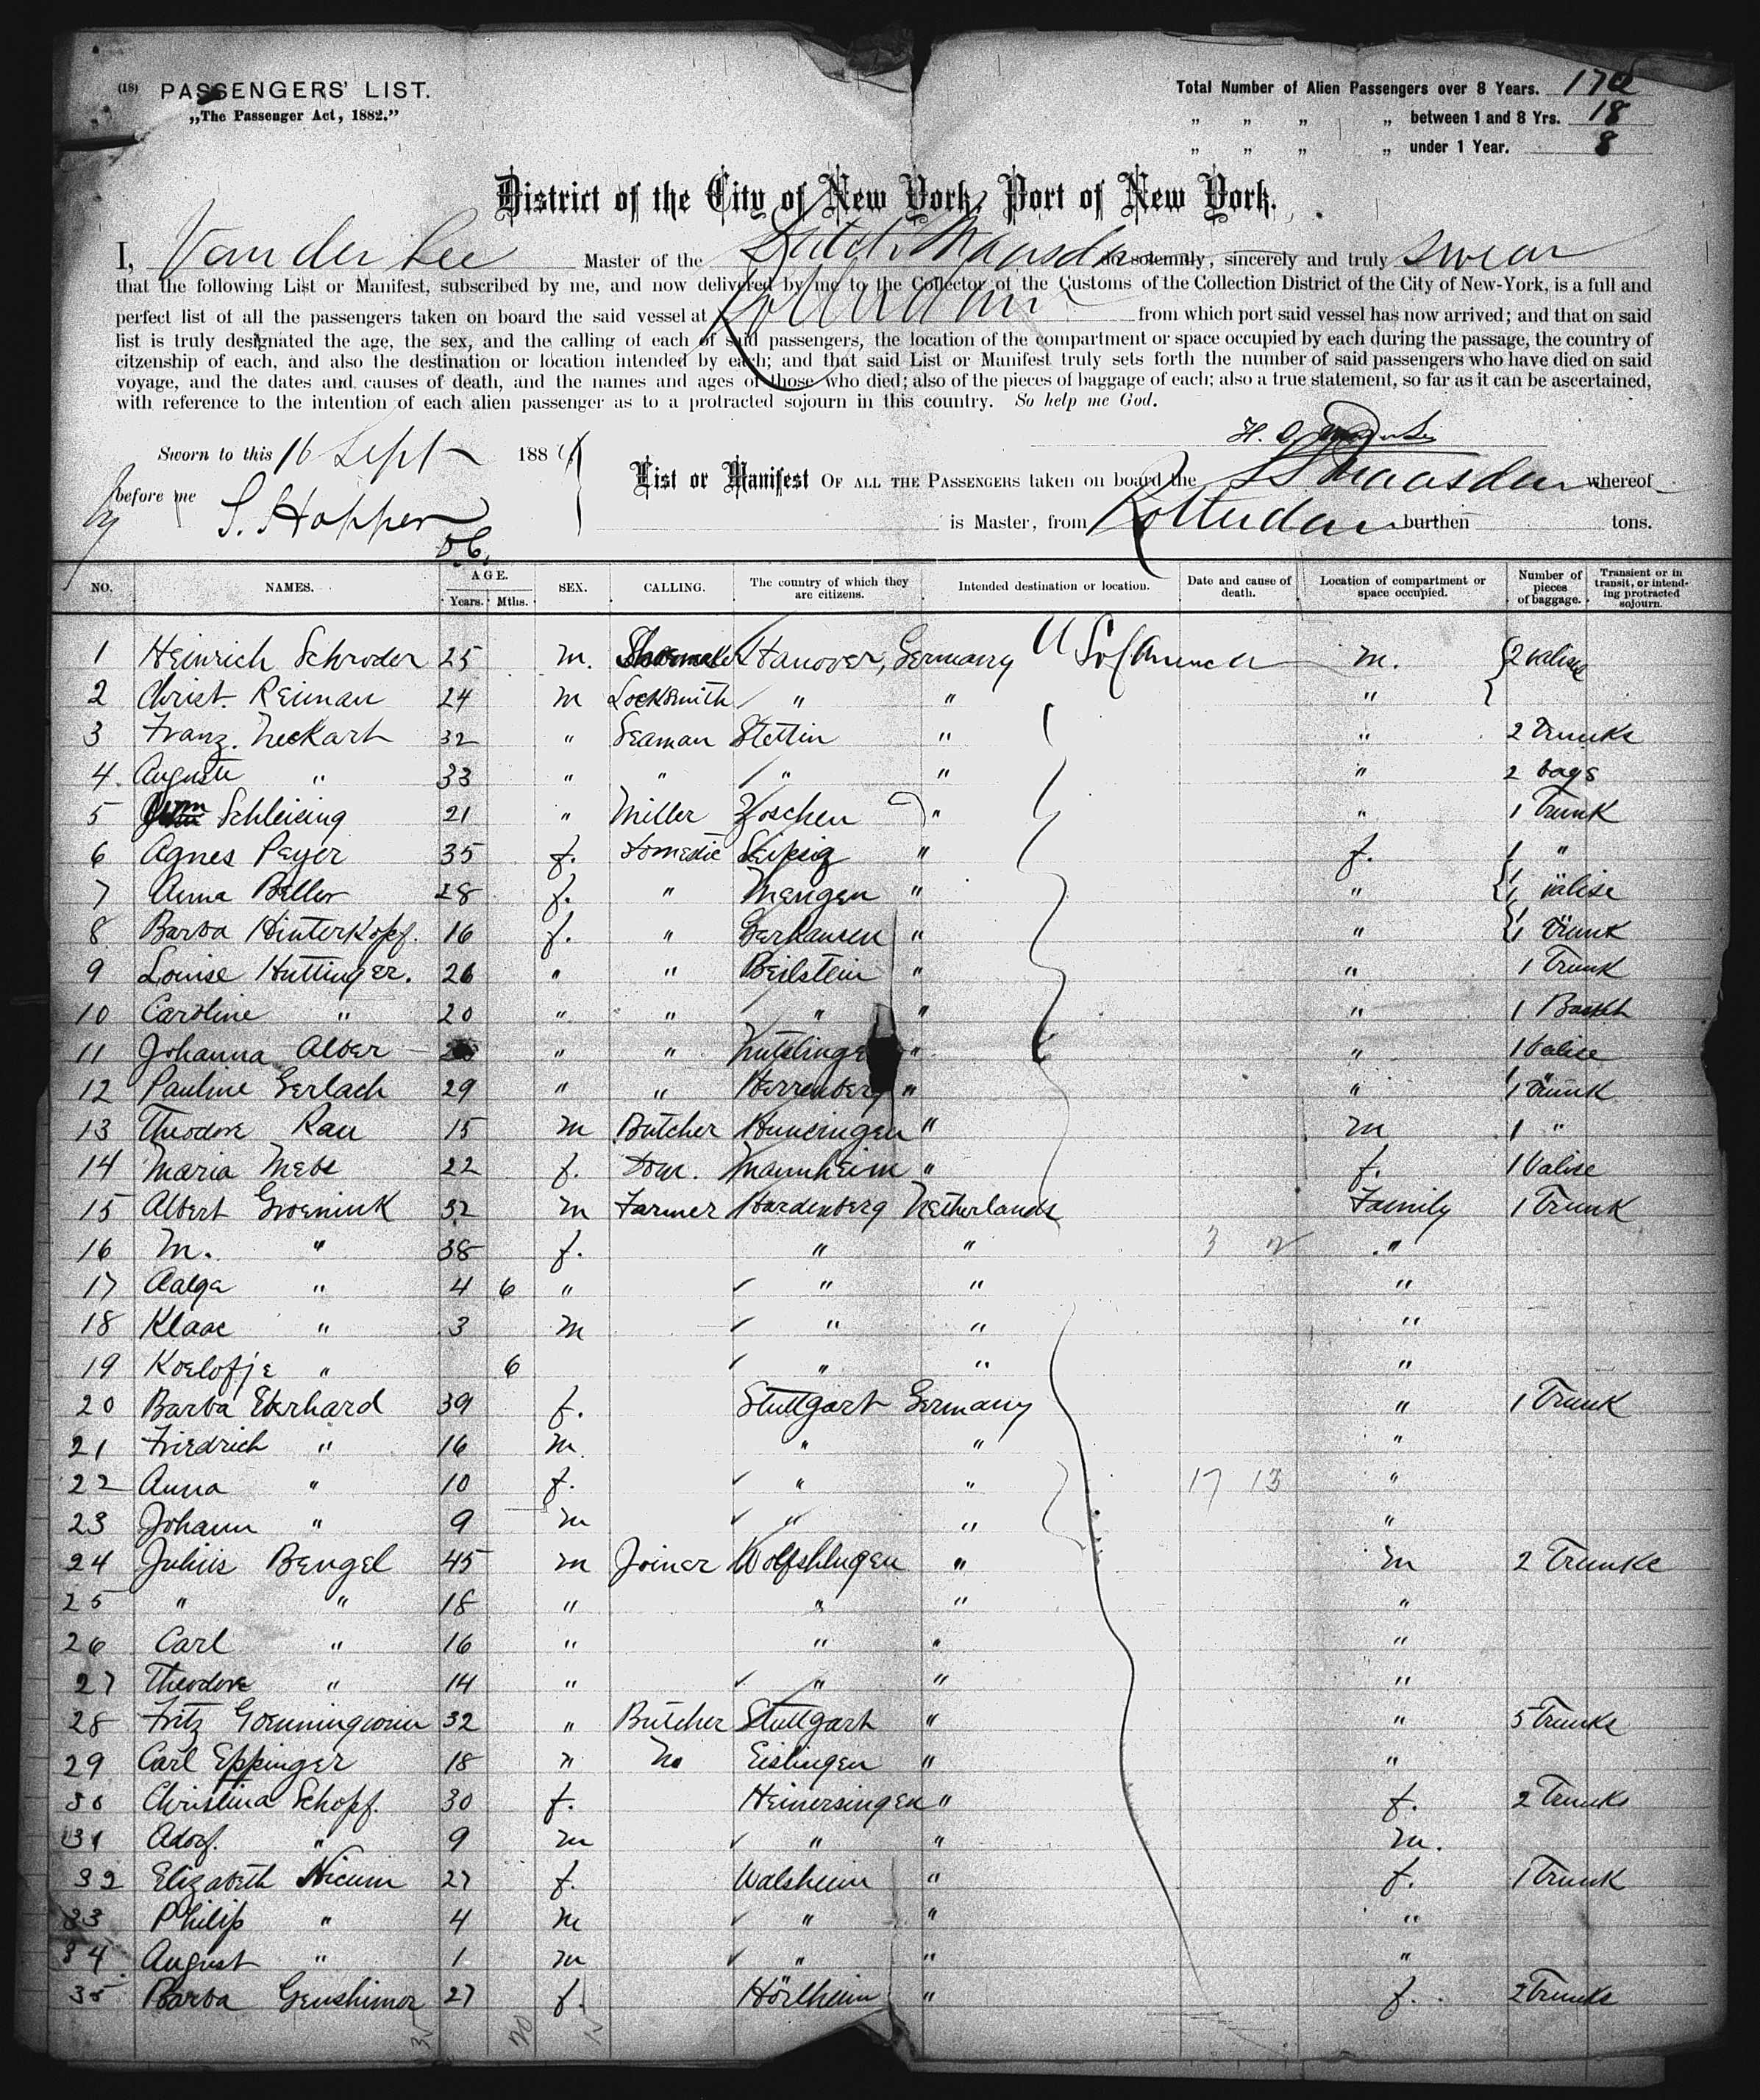 (18) PASSENGERS' LIST.
„The Passenger Act, 1882.”
Total Number of Alien Passengers over 8 Years. 170
„ „ „ „ between 1 and 8 Yrs. 18
„ „ „ „ under 1 Year. 8
District of the City of New York, Port of New York.
I, Van der Zee Master of the Dutch Maasdam do solemnly, sincerely and truly swear
that the following List or Manifest, subscribed by me, and now delivered by me to the Collector of the Customs of the Collection District of the City of New-York, is a full and
perfect list of all the passengers taken on board the said vessel at Rotterdam from which port said vessel has now arrived; and that on said
list is truly designated the age, the sex, and the calling of each of said passengers, the location of the compartment or space occupied by each during the passage, the country of
citzenship of each, and also the destination or location intended by each; and that said List or Manifest truly sets forth the number of said passengers who have died on said
voyage, and the dates and causes of death, and the names and ages of those who died; also of the pieces of baggage of each; also a true statement, so far as it can be ascertained,
with reference to the intention of each alien passenger as to a protracted sojourn in this country. So help me God.
Sworn to this 16 Sept 188
before me S. Hopper
D.C.
List or Manifest OF ALL THE PASSENGERS taken on board the SS Maasdam whereof
is Master, from Rotterdam burthen tons.
NO. NAMES. AGE. Years. Mths. SEX. CALLING. The country of which they are citizens. Intended destination or location. Date and cause of death. Location of compartment or space occupied. Number of pieces of baggage. Transient or in transit, or intending protracted sojourn.
1 Heinrich Schroder 25 m. Shoemaker Hanover, Germany U S of America m. 2 valises
2 Christ. Reiman 24 m Locksmith " " "
3 Franz. Neckarh 32 " Seaman Stettin " " 2 Trunks
4. Auguste " 33 " " " " " 2 bags
5 Schleising 21 " Miller Zoschen " " 1 Trunk
6 Agnes Peyer 35 f. Domestic Leipzig " f. 1 "
7 Anna Beller 28 f. " Mengen " " 1 valise
8 Barba Hinterkopf. 16 f. " Gerhausen " " 1 Trunk
9 Louise Huttinger. 26 " " Beilstein " " 1 Trunk
10 Caroline " 20 " " " " " 1
11 Johanna Alber " " " " 1 Valise
12 Pauline Gerlach 29 " " Herrenberg " " 1 Trunk
13 Theodore Rau 15 m Butcher Huncingen " m 1 "
14 Maria Mebs 22 f. Dom. Mannheim " f. 1 Valise
15 Albert Groenink 32 m Farmer Hardenberg Netherlands Family 1 Trunk
16 M. " 38 f. " " 3 2 "
17 Aalga " 4 6 " " " "
18 Klaas " 3 m " " "
19 Roelofje " 6 " " "
20 Barba Eberhard 39 f. Stuttgart Germany " 1 Trunk
21 Friedrich " 16 m " " "
22 Anna " 10 f. " " 17 13 "
23 Johann " 9 m " " "
24 Julius Bengel 45 m Joiner Wolfshlugen " m 2 Trunks
25 " " 18 " " " "
26 Carl " 16 " " " "
27 Theodore " 14 " " " "
28 Fritz 32 " Butcher Stuttgart " " 5 Trunks
29 Carl Eppinger 18 " No Eislingen " "
30 Christina Schopf. 30 f. Heinersingen " f. 2 Trunks
31 Adorf. " 9 m " " m.
32 Elizabeth Nicum 27 f. Walsheim " f. 1 Trunk
33 Philip " 4 m " " "
34 August " 1 m " " "
35 Barba Genshimer 27 f. Hörlheim " f. 2 Trunks